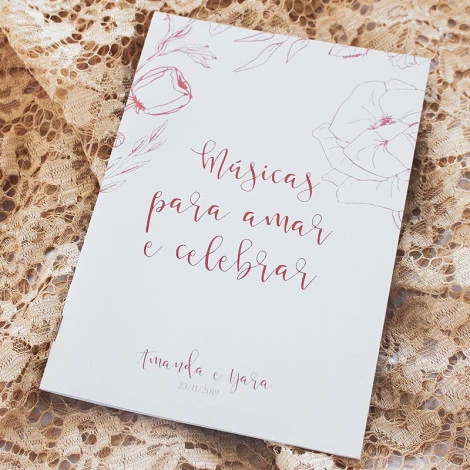 Músicas
para amar
e celebrar
Amanda e Yara
23/11/2019